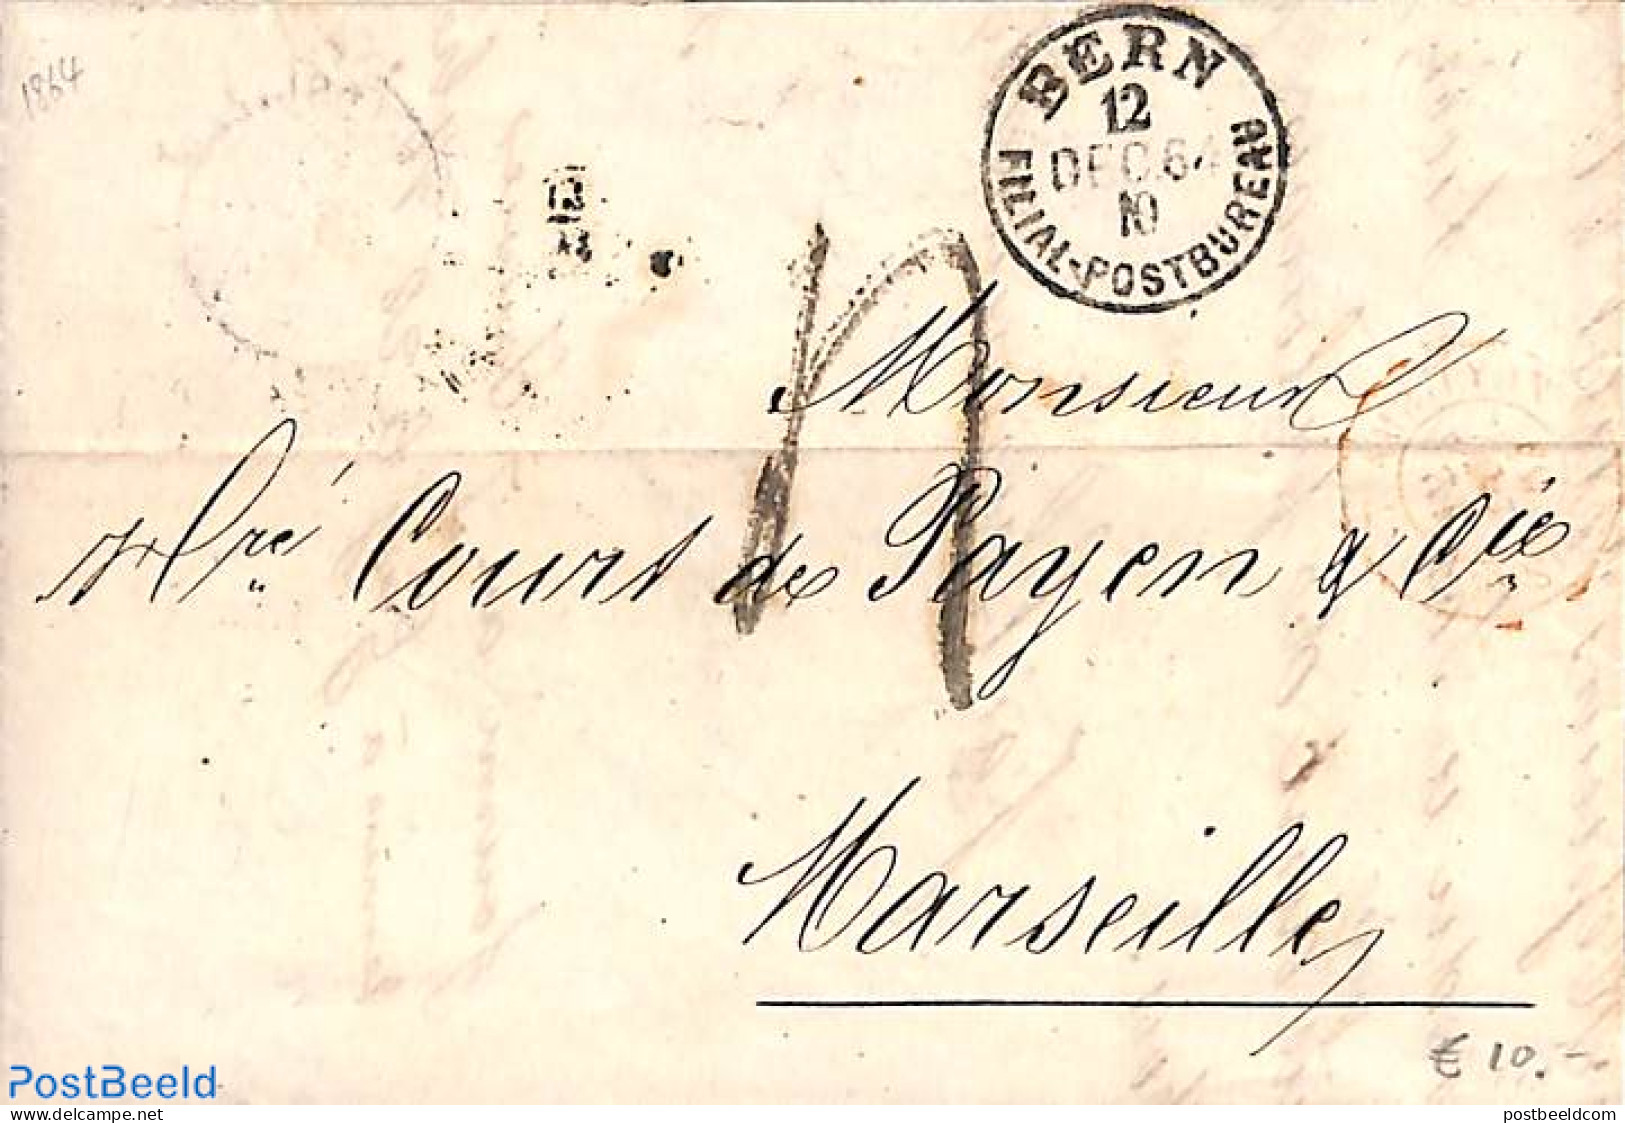 1864
BERN
12
DEC 64
10
FILIAL-POSTBUREAU
Monsieur
Court de Payen & Cie
Marseille
€ 10.-
PostBeeld
www.delcampe.net
postbeeldcom